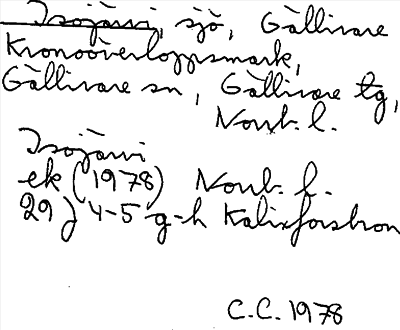 Isojärvi, sjö, Gällivare
Kronoöverloppsmark,
Gällivare sn, Gällivare tg,
Norrb. l.
Isojärvi
ek (1978) Norrb. l.
29J 4-5 g-h Kalixforsbron
C.C. 1978